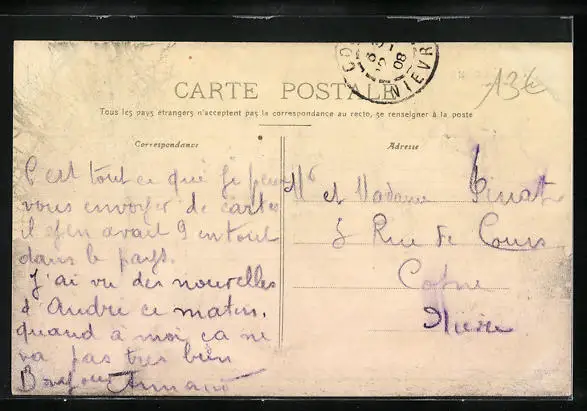 CO NIEVR 08
13€
CARTE POSTALE
Tous les pays étrangers n'acceptent pas la correspondance au recto, se renseigner à la poste
Correspondance
C'est tout ce que je peux
vous envoyer de cartes
il y en avait 9 en tout
dans le pays.
J'ai vu des nouvelles
d'André ce matin,
quand à moi, ça ne
va pas très bien
Bonjour Armand
Adresse
Mr et Madame Pinat
5 Rue de Cours
Cosne
Nièvre